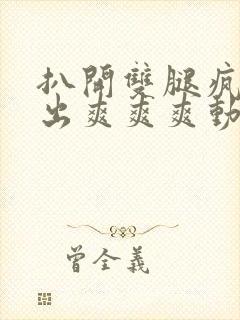 扒開雙腿瘋
出爽爽爽動
曾全義